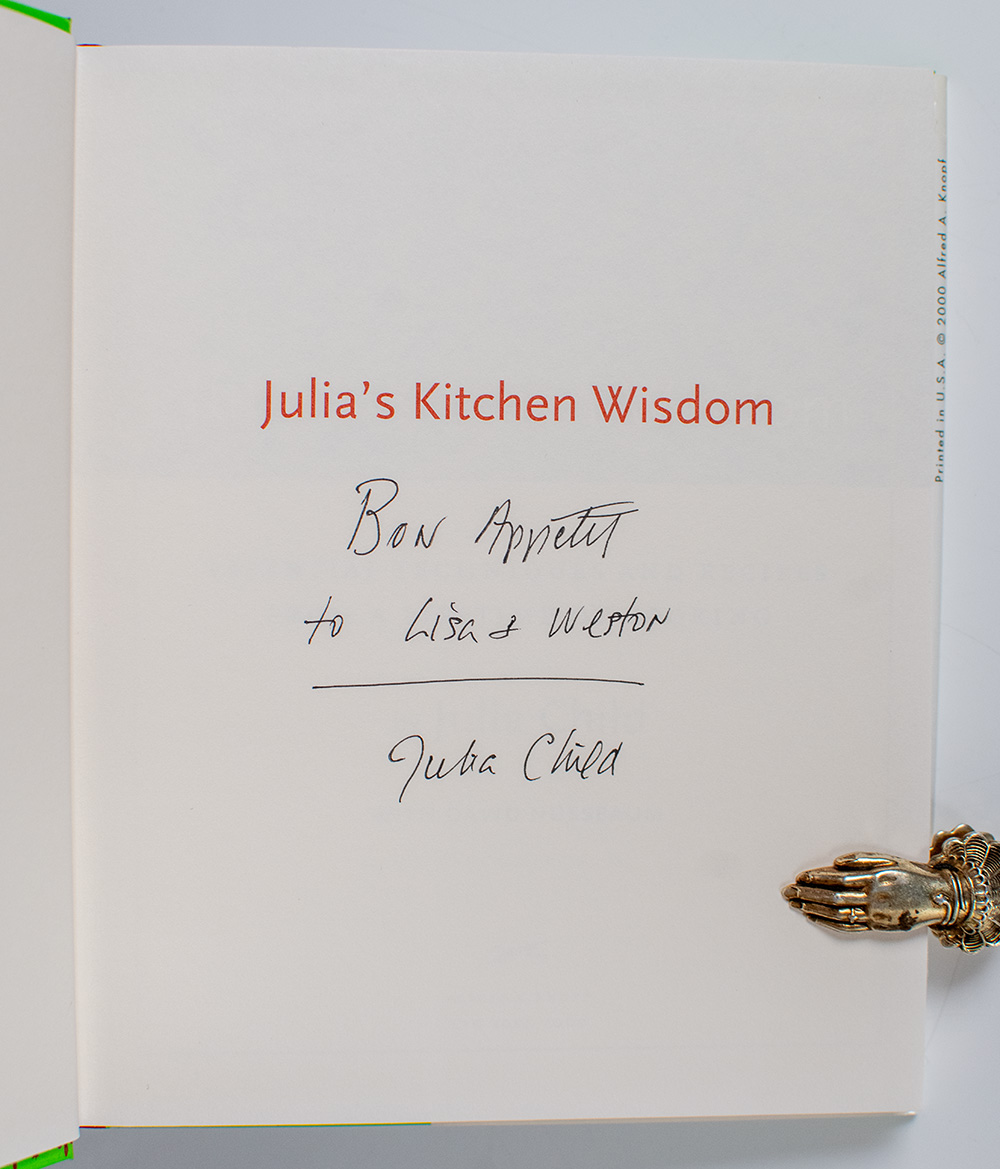 Julia's Kitchen Wisdom
Bon Appetit
to Lisa & Weston
Julia Child
Printed in U.S.A. © 2000 Alfred A. Knopf